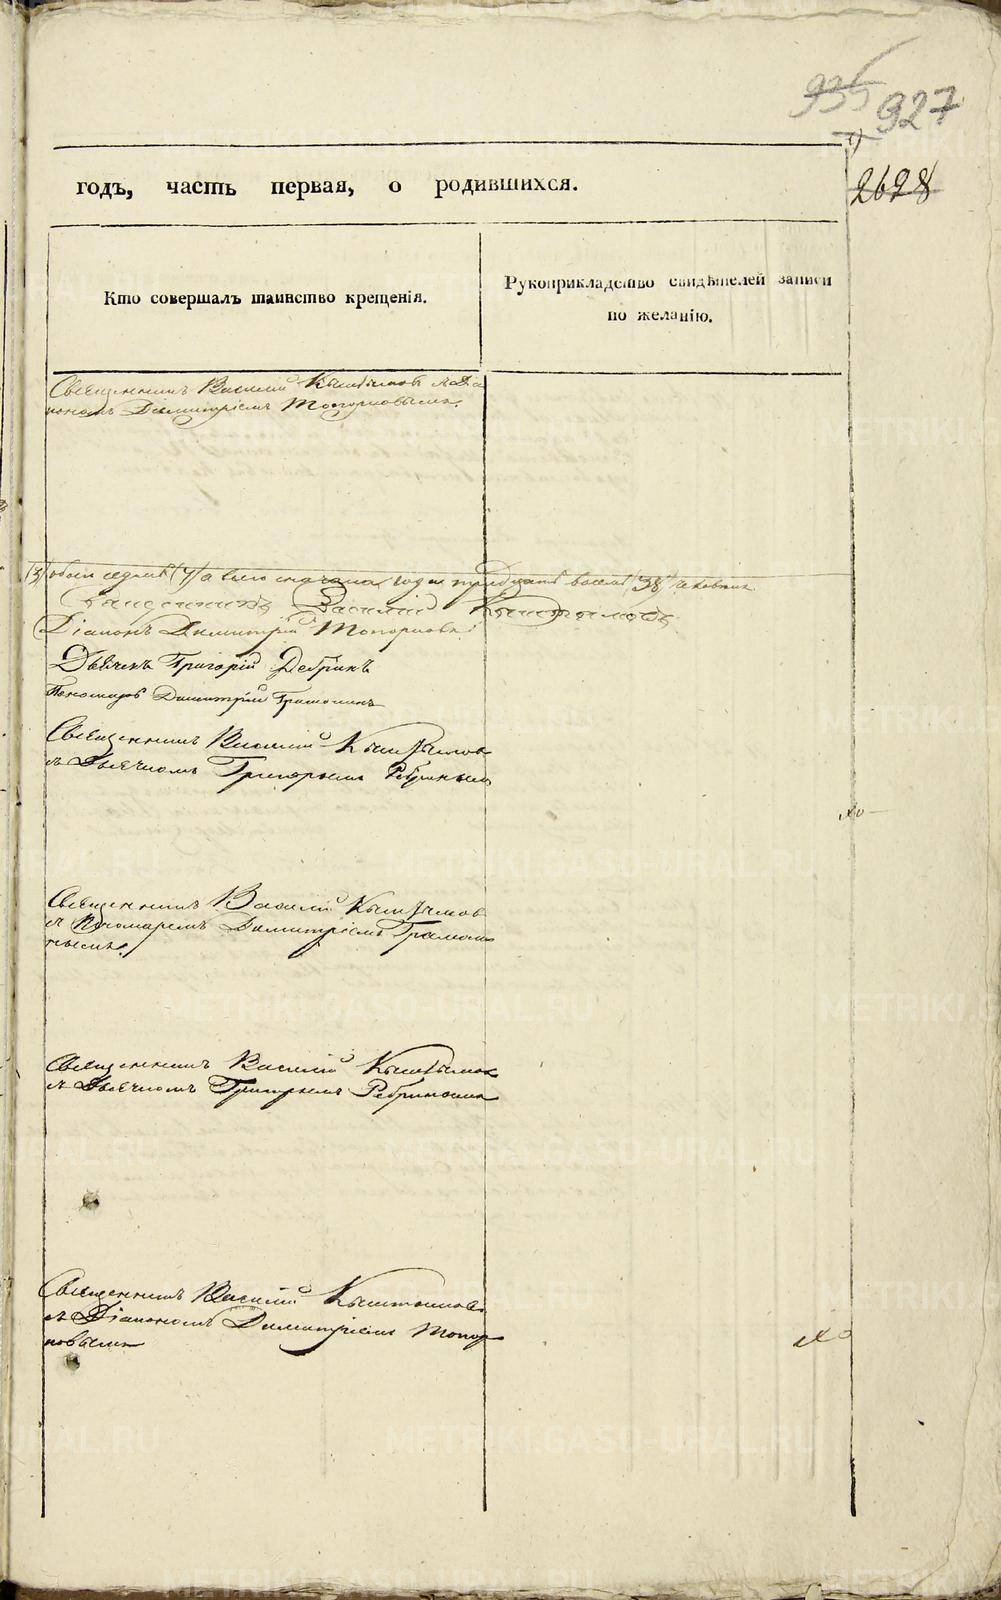 935 927
2628
годъ, часть первая, о родившихся.
Кто совершалъ таинство крещенія.
Рукоприкладство свидѣтелей записи
по желанію.
Священникъ Василій Кыштымовъ съ Діа
кономъ Димитріемъ Топорковымъ.
(3) обоего (7) а всего сначала года тридцать восемь (38) человѣкъ
Священникъ Василій Кыштымовъ
Діаконъ Димитрій Топорковъ
Дьячекъ Григорій Ребринъ
Пономарь Димитрій Грамолинъ
Священникъ Василій Кыштымовъ
съ Дьячкомъ Григорьемъ Ребринымъ
Священникъ Василій Кыштымовъ
съ Пономаремъ Димитріемъ Грамоли
нымъ.
Священникъ Василій Кыштымовъ
съ Дьячкомъ Григорьемъ Ребринымъ
Священникъ Василій Кыштымовъ
съ Діакономъ Димитріемъ Топор
ковымъ
METRIKI.GASO-URAL.RU